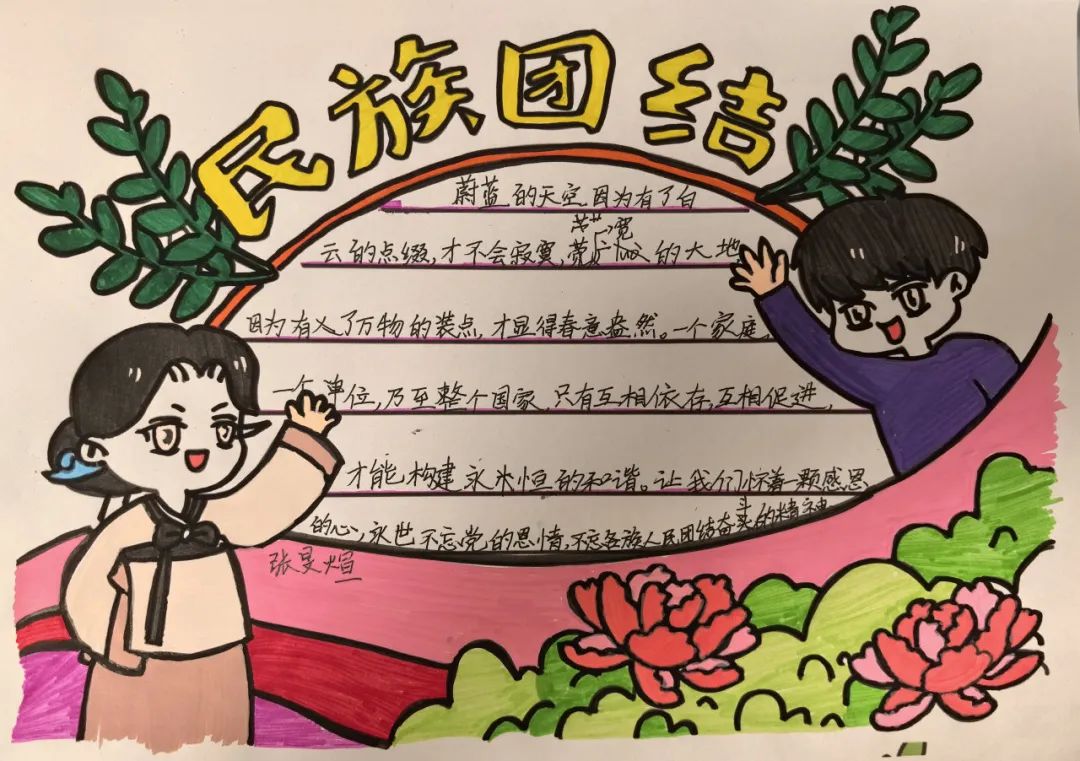 民族团结
蔚蓝的天空因为有了白
云的点缀,才不会寂寞,宽的大地
因为有了万物的装点,才显得春意盎然。一个家庭,
一个单位,乃至整个国家,只有互相依存,互相促进,
才能构建永恒的和谐。让我们怀着一颗感恩
的心,永世不忘党的恩情,不忘各族人民团结奋斗的精神
张旻煊